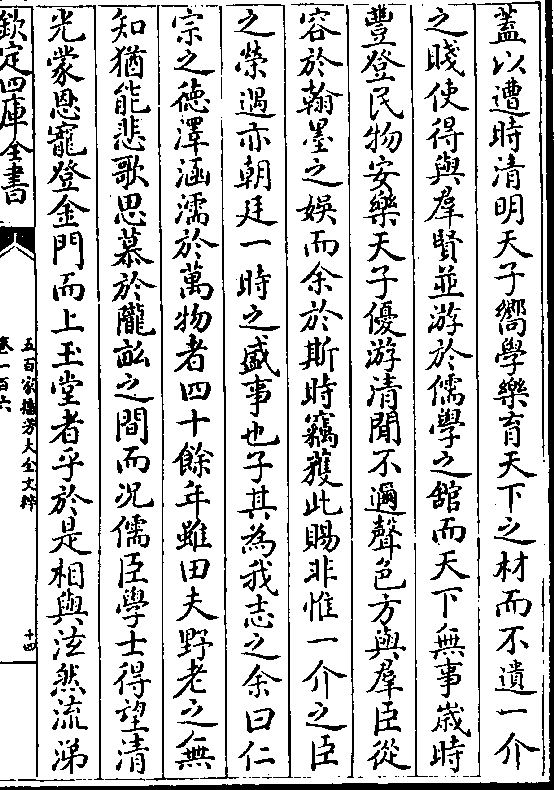 蓋以遭時清明天子嚮學樂育天下之材而不遺一介
之賤使得與羣賢並游於儒學之舘而天下無事嵗時
豐登民物安樂天子優游清閒不邇聲色方與羣臣從
容於翰墨之娛而余於斯時竊獲此賜非惟一介之臣
之榮遇亦朝廷一時之盛事也子其為我志之余曰仁
宗之徳澤涵濡於萬物者四十餘年雖田夫野老之無
知猶能悲歌思慕於隴畝之間而况儒臣學士得望清
光蒙恩寵登金門而上玉堂者乎於是相與泫然流涕
欽定四庫全書
五百家播芳大全文粹
卷一百六
十四